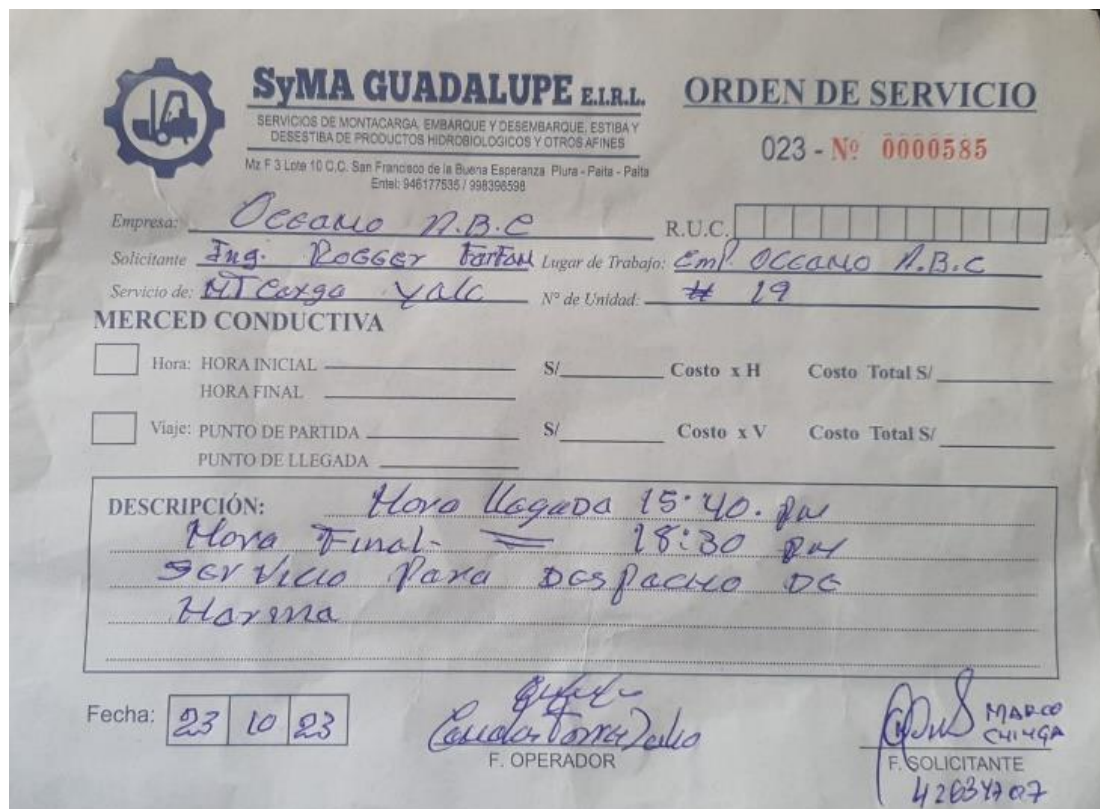 SyMA GUADALUPE E.I.R.L.
SERVICIOS DE MONTACARGA, EMBARQUE Y DESEMBARQUE, ESTIBA Y
DESESTIBA DE PRODUCTOS HIDROBIOLOGICOS Y OTROS AFINES
Mz F 3 Lote 10 C.C. San Francisco de la Buena Esperanza Piura - Paita - Paita
Entel: 946177535 / 998396598
ORDEN DE SERVICIO
023 - Nº 0000585
Empresa: Occano A.B.C R.U.C.
Solicitante Ing. Rogger Farfan Lugar de Trabajo: Emp. Occano A.B.C
Servicio de: MT Carga Yale Nº de Unidad: # 19
MERCED CONDUCTIVA
Hora: HORA INICIAL S/ Costo x H Costo Total S/
HORA FINAL
Viaje: PUNTO DE PARTIDA S/ Costo x V Costo Total S/
PUNTO DE LLEGADA
DESCRIPCIÓN: Hora llegada 15:40. PM
Hora Final - 18:30 PM
Servicio Para Despacho De
Harina
Fecha: 23 10 23
F. OPERADOR
MARCO
CHINGA
F. SOLICITANTE